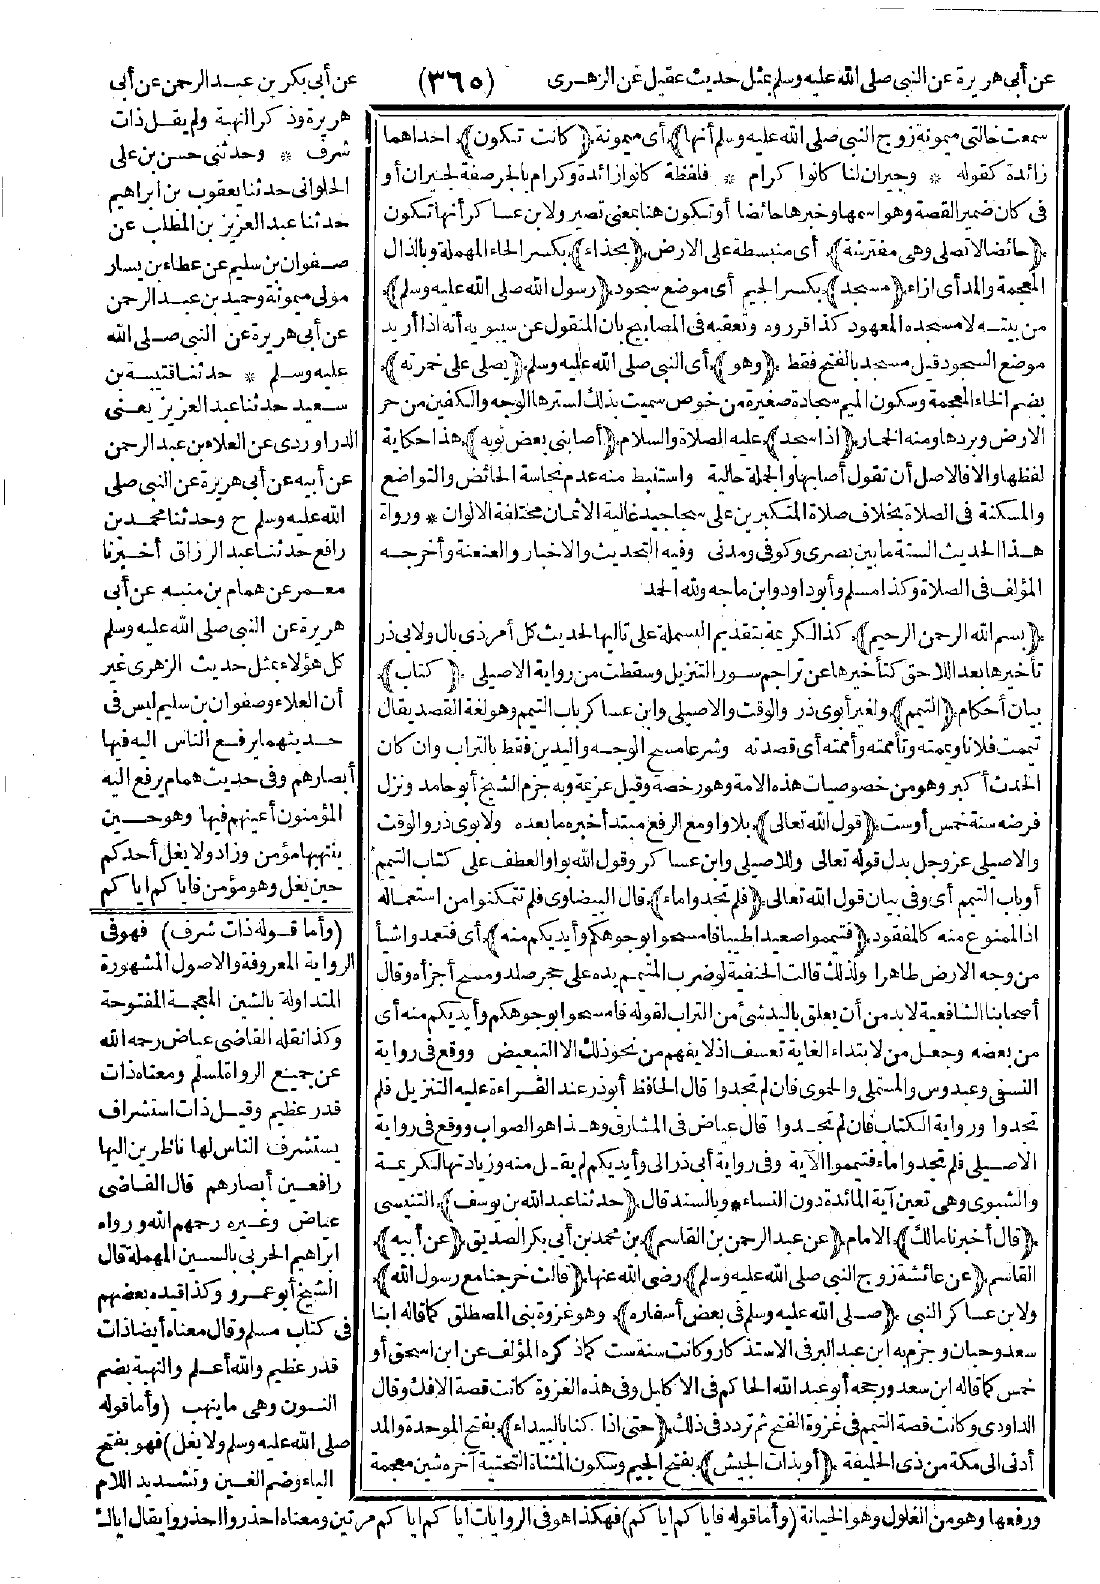 عن أبي هريرة عن النبي صلى الله عليه وسلم بمثل حديث عقيل عن الزهرى (٣٦٥) عن أبي بكر بن عبد الرحمن عن أبي
سمعت خالتي ميمونة زوج النبي صلى الله عليه وسلم أنها) أي ميمونة (كانت تكون) احداهما
زائدة كقوله * وجيران لنا كانوا كرام * فلفظة كانوا زائدة وكرام بالجر صفة لجيران أو
في كان ضمير القصة وهو اسمها وخبرها حائضا أو تكون هنا بمعنى تصير ولابن عساكر أنها تكون
(حائضا لا تصلى وهى مفترشة) أى منبسطة على الارض (بحذاء) بكسر الحاء المهملة وبالذال
المعجمة والمد أى ازاء (مسجد) بكسر الجيم أى موضع سجود (رسول الله صلى الله عليه وسلم)
من بيته لا مسجده المعهود كذا قرروه وتعقبه فى المصابيح بان المنقول عن سيبويه أنه اذا أريد
موضع السجود قيل مسجد بالفتح فقط (وهو) أى النبي صلى الله عليه وسلم (يصلى على خمرته)
بضم الخاء المعجمة وسكون الميم سجادة صغيرة من خوص سميت بذلك لسترها الوجه والكفين من حر
الارض وبردها ومنه الخمار (اذا سجد) عليه الصلاة والسلام (أصابنى بعض ثوبه) هذا حكاية
لفظها والا فالاصل أن تقول أصابها والجملة حالية واستنبط منه عدم نجاسة الحائض والتواضع
والمسكنة فى الصلاة بخلاف صلاة المتكبرين على سجاجيد غالية الاثمان مختلفة الالوان * ورواة
هذا الحديث الستة ما بين بصرى وكوفى ومدنى وفيه التحديث والاخبار والعنعنة وأخرجه
المؤلف فى الصلاة وكذا مسلم وأبوداود وابن ماجه ولله الحمد
(بسم الله الرحمن الرحيم) كذا لكريمة بتقديم البسملة على تاليها الحديث كل أمر ذى بال ولابى ذر
تأخيرها بعد اللاحق كتأخيرها عن تراجم سور التنزيل وسقطت من رواية الاصيلى (كتاب)
بيان أحكام (التيمم) ولغير أبوى ذر والوقت والاصيلى وابن عساكر باب التيمم وهو لغة القصد يقال
تيممت فلانا ويممته وتأممته وأممته أى قصدته وشرعا مسح الوجه واليدين فقط بالتراب وان كان
الحدث أكبر وهو من خصوصيات هذه الامة وهو رخصة وقيل عزيمة وبه جزم الشيخ أبو حامد ونزل
فرضه سنة خمس أو ست (قول الله تعالى) بلا واو مع الرفع مبتدأ خبره ما بعده ولابوى ذر والوقت
والاصيلى عز وجل بدل قوله تعالى وللاصيلى وابن عساكر وقول الله بواو العطف على كتاب التيمم
أو باب التيمم أى وفى بيان قول الله تعالى (فلم تجدوا ماء) قال البيضاوى فلم تتمكنوا من استعماله
اذ الممنوع منه كالمفقود (فتيمموا صعيدا طيبا فامسحوا بوجوهكم وأيديكم منه) أى فتعمدوا شيأ
من وجه الارض طاهرا ولذلك قالت الحنفية لو ضرب المتيمم يده على حجر صلد ومسح أجزأه وقال
أصحابنا الشافعية لابد من أن يعلق باليد شئ من التراب لقوله فامسحوا بوجوهكم وأيديكم منه أى
من بعضه وجعل من لابتداء الغاية تعسف اذ لا يفهم من نحو ذلك الا التبعيض ووقع فى رواية
النسفى وعبدوس والمستملى والحموى فان لم تجدوا قال الحافظ أبوذر عند القراءة عليه التنزيل فلم
تجدوا ورواية الكتاب فان لم تجدوا قال عياض فى المشارق وهذا هو الصواب ووقع فى رواية
الاصيلى فلم تجدوا ماء فتيمموا الآية وفى رواية أبى ذر الى وأيديكم لم يقل منه وزيادتها لكريمة
والشبوى وهى تعين آية المائدة دون النساء * وبالسند قال (حدثنا عبد الله بن يوسف) التنيسى
(قال أخبرنا مالك) الامام (عن عبد الرحمن بن القاسم) بن محمد بن أبى بكر الصديق (عن أبيه)
القاسم (عن عائشة زوج النبي صلى الله عليه وسلم) رضى الله عنها (قالت خرجنا مع رسول الله)
ولابن عساكر النبي (صلى الله عليه وسلم فى بعض أسفاره) وهو غزوة بنى المصطلق كما قاله ابنا
سعد وحبان وجزم به ابن عبد البر فى الاستذكار وكانت سنة ست كما ذكره المؤلف عن ابن اسحق أو
خمس كما قاله ابن سعد ورجحه أبو عبد الله الحاكم فى الاكليل وفى هذه الغزوة كانت قصة الافك وقال
الداودى وكانت قصة التيمم فى غزوة الفتح ثم تردد فى ذلك (حتى اذا كنا بالبيداء) بفتح الموحدة والمد
أدنى الى مكة من ذى الحليفة (أو بذات الجيش) بفتح الجيم وسكون المثناة التحتية آخره شين معجمة
هريرة وذكر النهبة ولم يقل ذات
شرف * وحدثنى حسن بن على
الحلوانى حدثنا يعقوب بن ابراهيم
حدثنا عبد العزيز بن المطلب عن
صفوان بن سليم عن عطاء بن يسار
مولى ميمونة وحميد بن عبد الرحمن
عن أبى هريرة عن النبي صلى الله
عليه وسلم * حدثنا قتيبة بن
سعيد حدثنا عبد العزيز يعنى
الدراوردى عن العلاء بن عبد الرحمن
عن أبيه عن أبى هريرة عن النبي صلى
الله عليه وسلم ح وحدثنا محمد بن
رافع حدثنا عبد الرزاق أخبرنا
معمر عن همام بن منبه عن أبى
هريرة عن النبي صلى الله عليه وسلم
كل هؤلاء بمثل حديث الزهرى غير
أن العلاء وصفوان بن سليم ليس فى
حديثهما يرفع الناس اليه فيها
أبصارهم وفى حديث همام يرفع اليه
المؤمنون أعينهم فيها وهو حين
ينتهبها مؤمن وزاد ولا يغل أحدكم
حين يغل وهو مؤمن فاياكم اياكم
(وأما قوله ذات شرف) فهو فى
الرواية المعروفة والاصول المشهورة
المتداولة بالشين المعجمة المفتوحة
وكذا نقله القاضى عياض رحمه الله
عن جميع الرواة لمسلم ومعناه ذات
قدر عظيم وقيل ذات استشراف
يستشرف الناس لها ناظرين اليها
رافعين أبصارهم قال القاضى
عياض وغيره رحمهم الله ورواه
ابراهيم الحربى بالسين المهملة قال
الشيخ أبو عمرو وكذا قيده بعضهم
فى كتاب مسلم وقال معناه أيضا ذات
قدر عظيم والله أعلم والنهبة بضم
النون وهى ما ينهب (وأما قوله
صلى الله عليه وسلم ولا يغل) فهو بفتح
الياء وضم الغين وتشديد اللام
ورفعها وهو من الغلول وهو الخيانة (وأما قوله فاياكم اياكم) فهكذا هو فى الروايات اياكم اياكم مرتين ومعناه احذروا احذروا يقال اياك